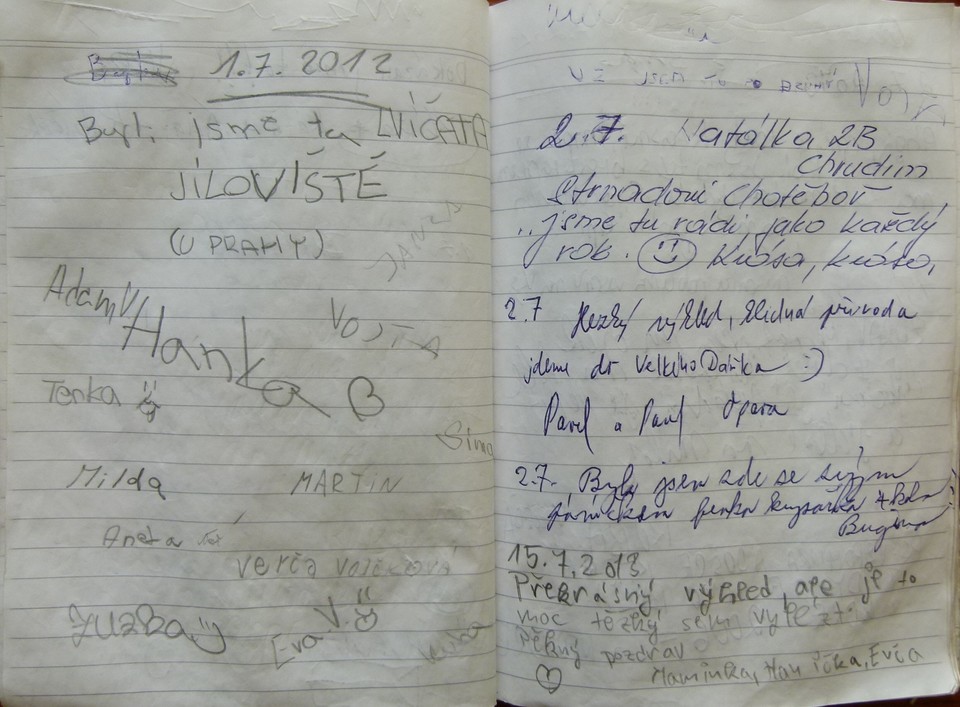 1.7.2012
Byli jsme tu ZVÍŘATA
JÍLOVIŠTĚ
(U PRAHY)
Adam V
Hanka B
VOJTA
Tenka
Sima
Milda
MARTIN
Aneta
Verča
Zuzka
Eva V
2.7. Natálka 2B
Chrudim
Strnadovi Chotěboř
..jsme tu rádi, jako každý
rok. Krása, krása,
2.7 Hezký výhled, klidná příroda
jdeme do Velkého Dářka :)
Pavel a Pavl Opava
2.7. Byla jsem zde se svým
páníčkem
15.7.2013
Překrásný výhled, ale je to
moc těžký sem vylézt.
Pěkný pozdrav
Maminka, Hanička, Evča